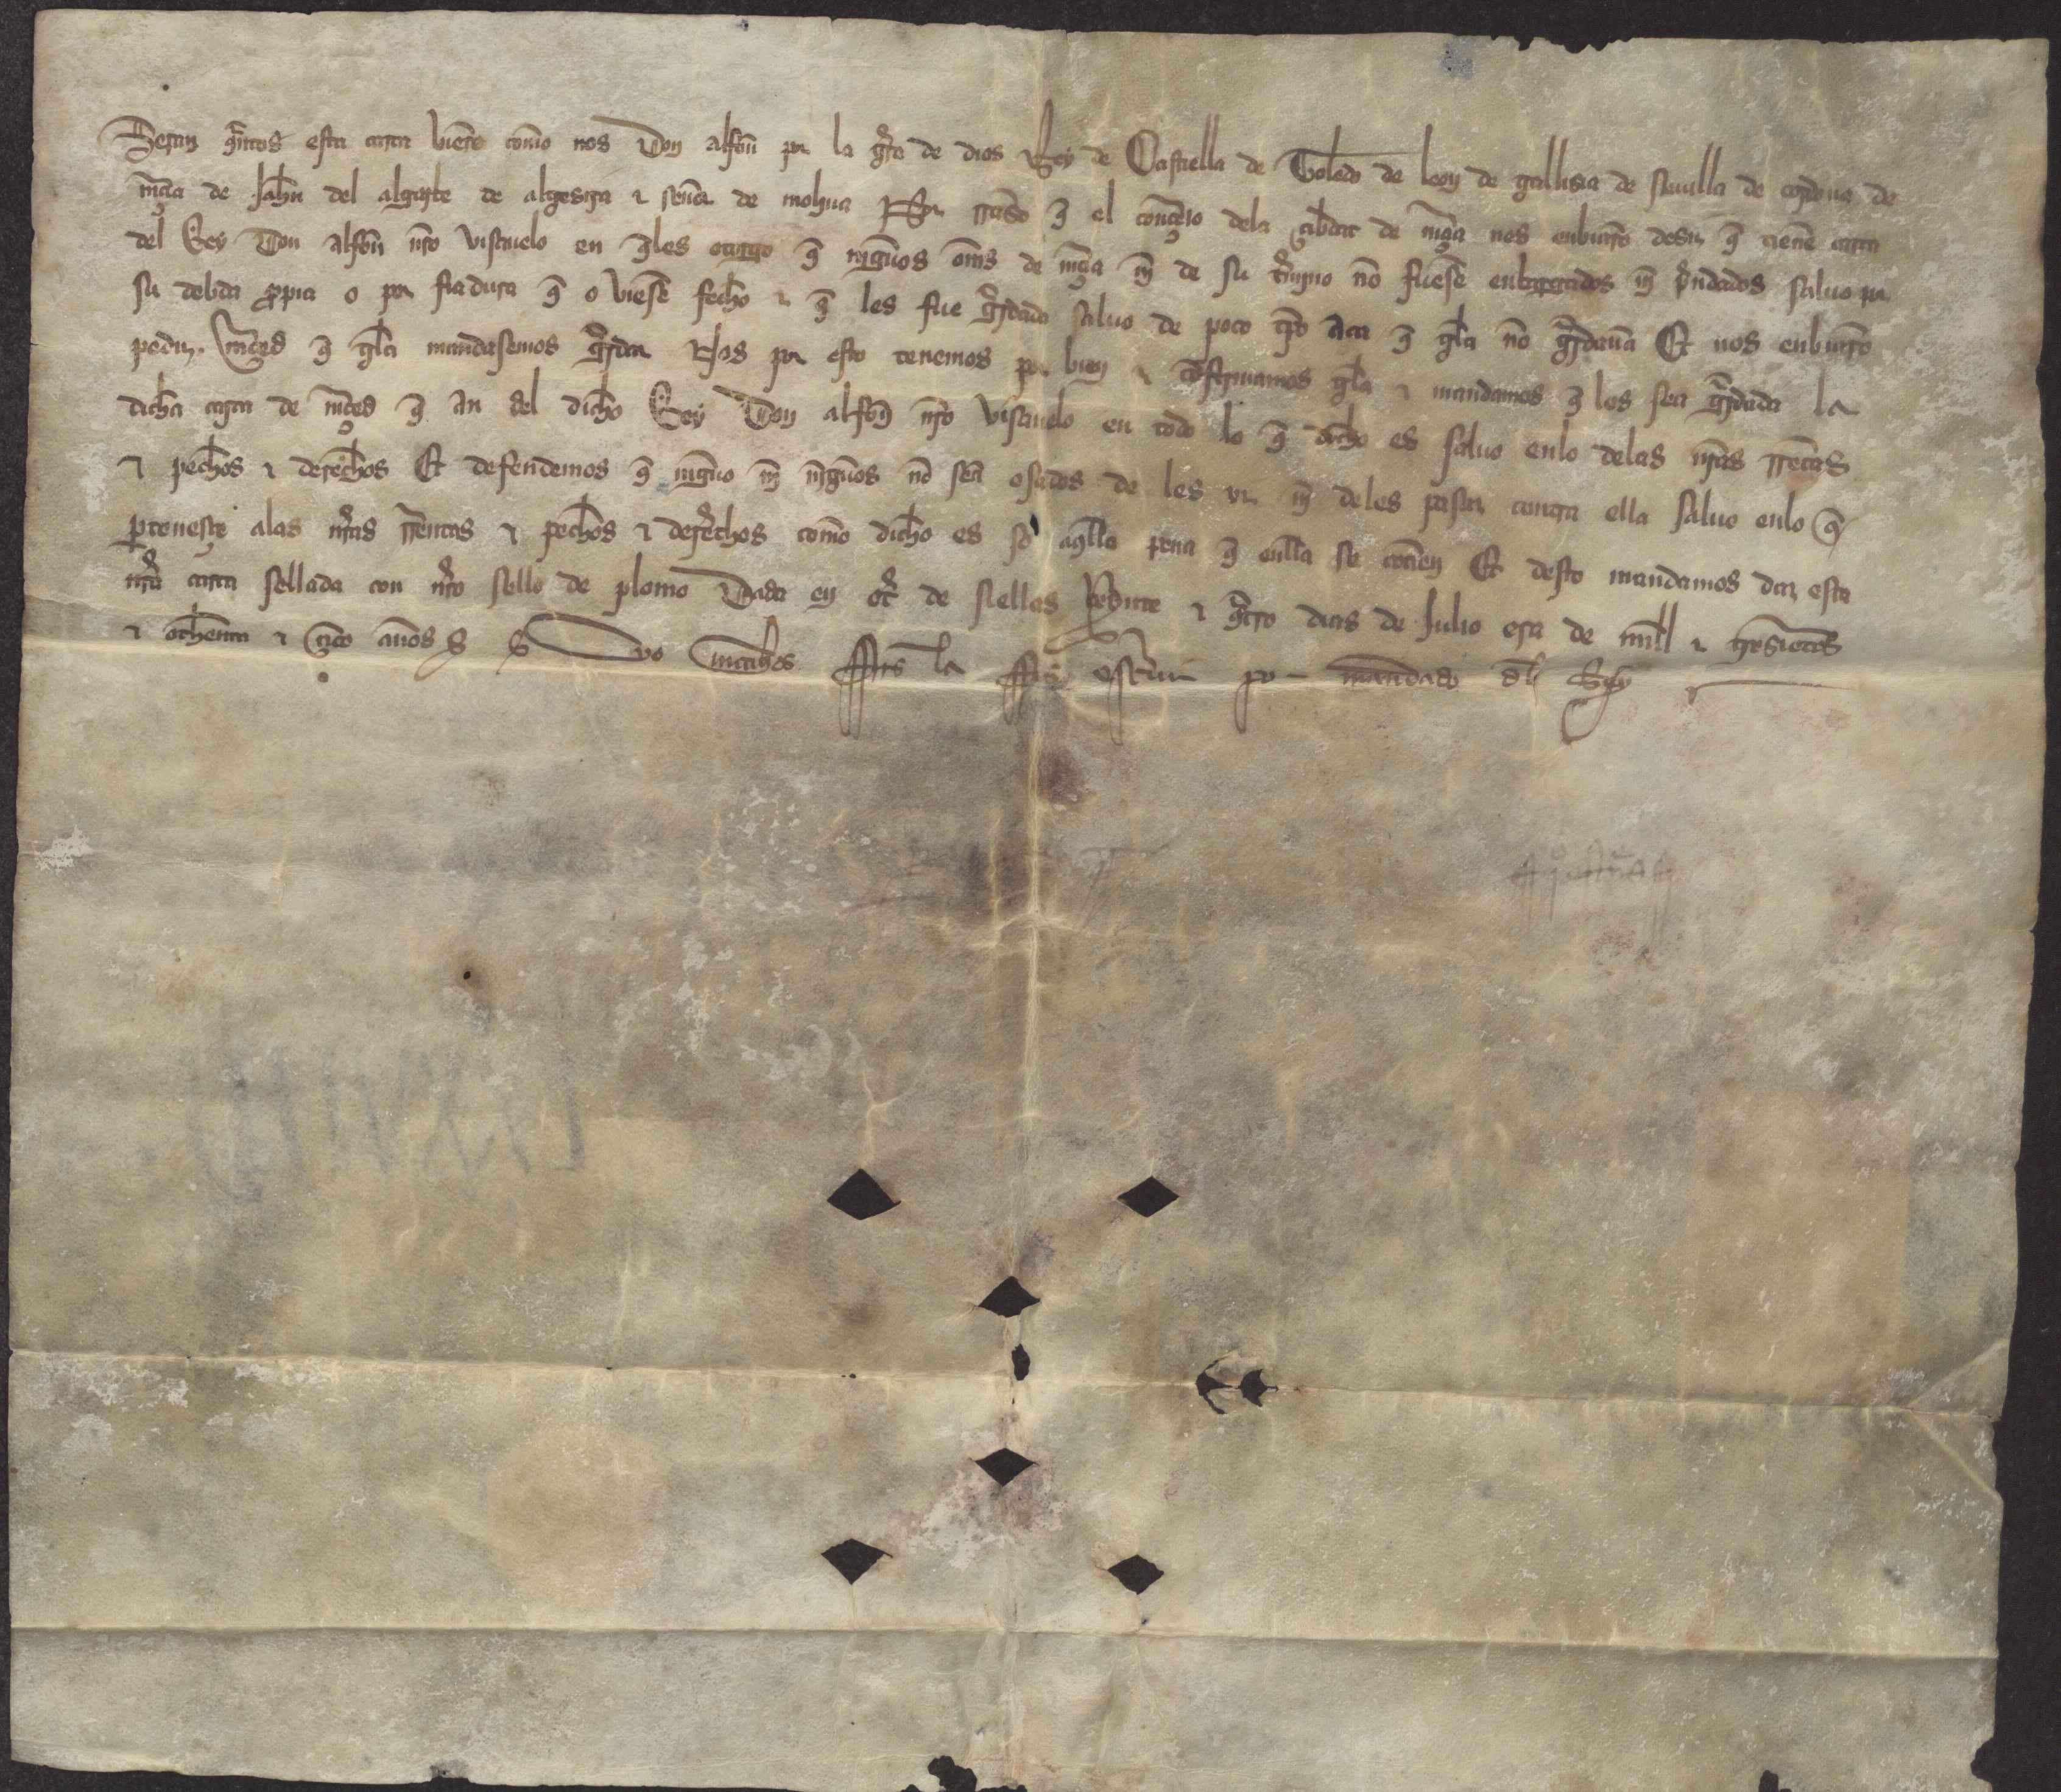 Sepan quantos esta carta vieren como nos Don alfon por la gra de dios Rey de Castiella de Toledo de leon de gallisia de seuilla de cordoua de
mçia de Jahn del algarbe de algesira & sennor de molina Por rason q el conçeio dela çibdat de mçia nos enbiaro desir q tiene carta
del Rey Don alfon nro visauelo en q les otorgo q ningunos oms de mçia ni de su tmino no fuesen enbargados ni pndados saluo por
su debda ppia o por fiadura q o viesen fecho & q les fue grdada saluo de poco tpo aca q gela no grdauan Et nos enbiaro
pedir mçed q gela mandasemos grdar Nos por esto tenemos por bien & cofirmamos gela & mandamos q les sea grdada la
dicha carta de mçed q an del dicho Rey Don alfon nro visauelo en todo lo q dicho es saluo enlo delas nras rentas
& pechos & derechos Et defendemos q niguno ni nigunos no sea osados de les yr ni deles pasar contra ella saluo enlo q
pteneçe alas nras rrentas & pechos & derechos como dicho es so aqlla pena q enlla se contien Et desto mandamos dar esta
nra carta sellada con nro sello de plomo Dada en de siellas veynte & qtro dias de Julio era de mill & tresientos
& ochenta & çinco annos la escriui por mandado del Rey